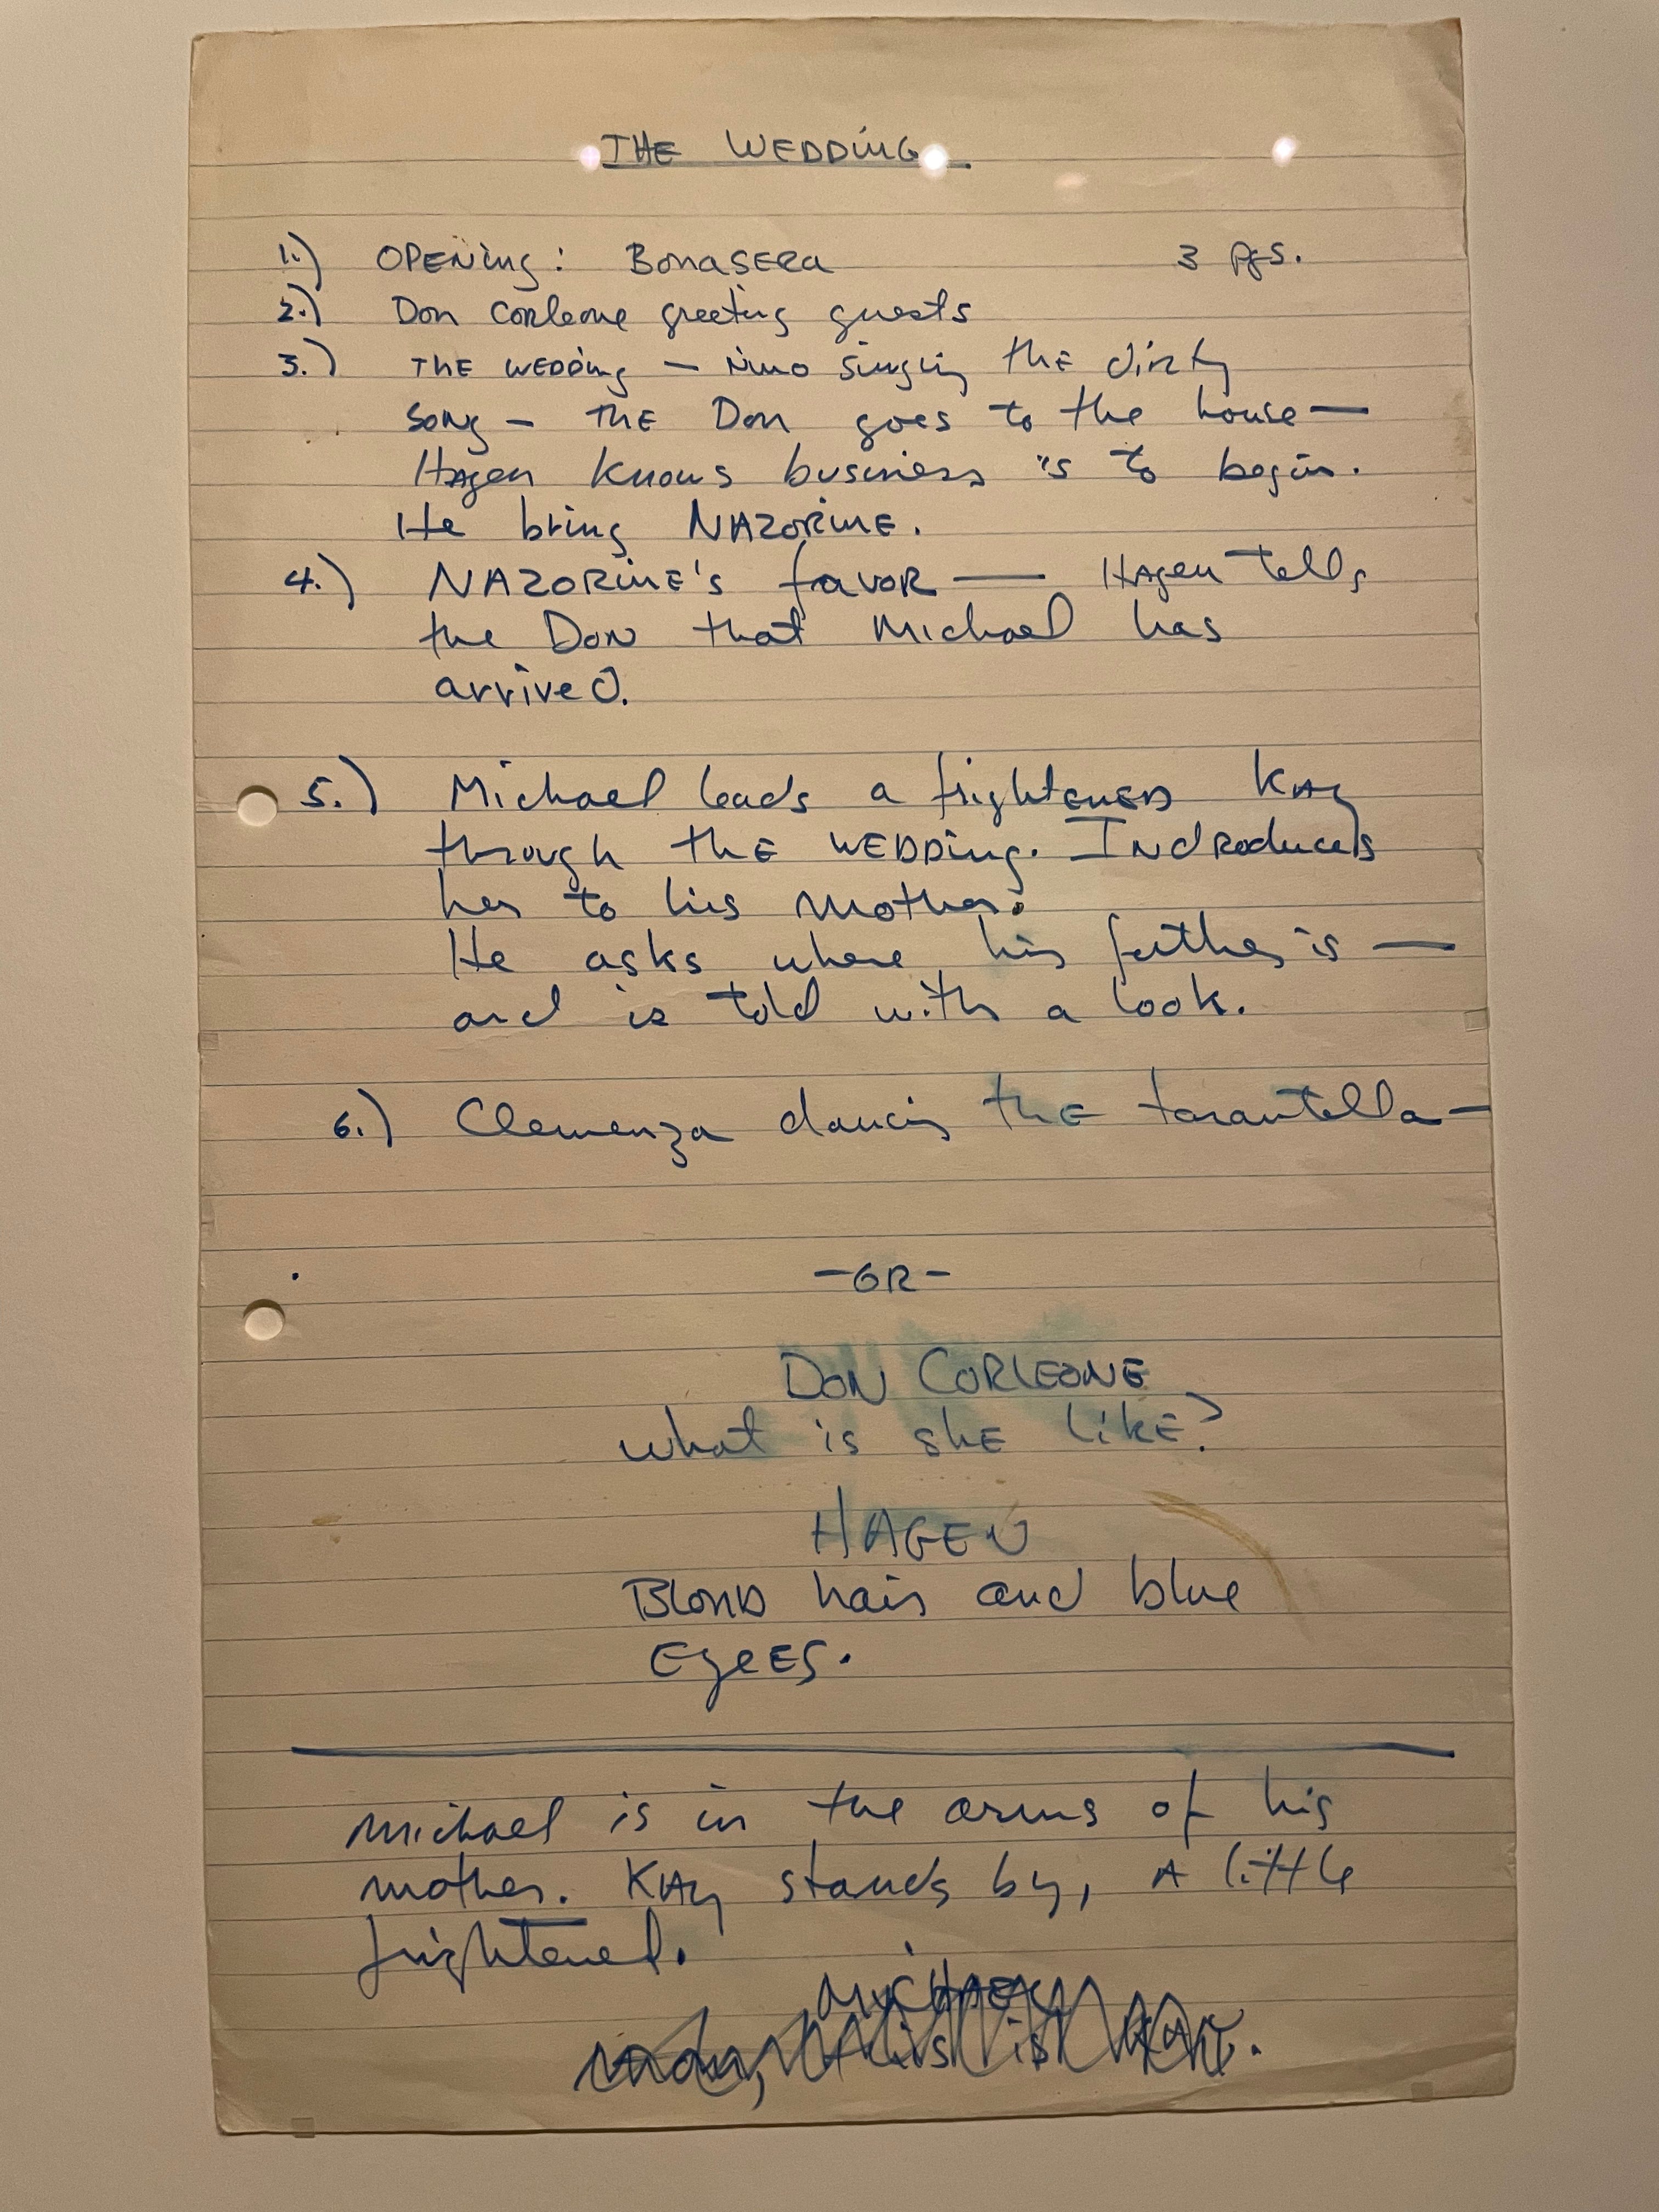 THE WEDDING
1.) OPENING: BONASERA 3 pgs.
2.) Don Corleone greeting guests
3.) THE WEDDING — Nino singing the dirty
song — THE Don goes to the house —
Hagen knows business is to begin.
He bring NAZORINE.
4.) NAZORINE'S favor — Hagen tells
the Don that Michael has
arrived.
5.) Michael leads a frightened Kay
through the WEDDING. Indroduces
her to his mother.
He asks where his father is —
and is told with a look.
6.) Clemenza dancing the tarantella —
-OR-
DON CORLEONE
what is she like?
HAGEN
Blond hair and blue
Eyees.
Michael is in the arms of his
mother. Kay stands by, A little
frightened.
MICHAEL
mom, this is KAY.